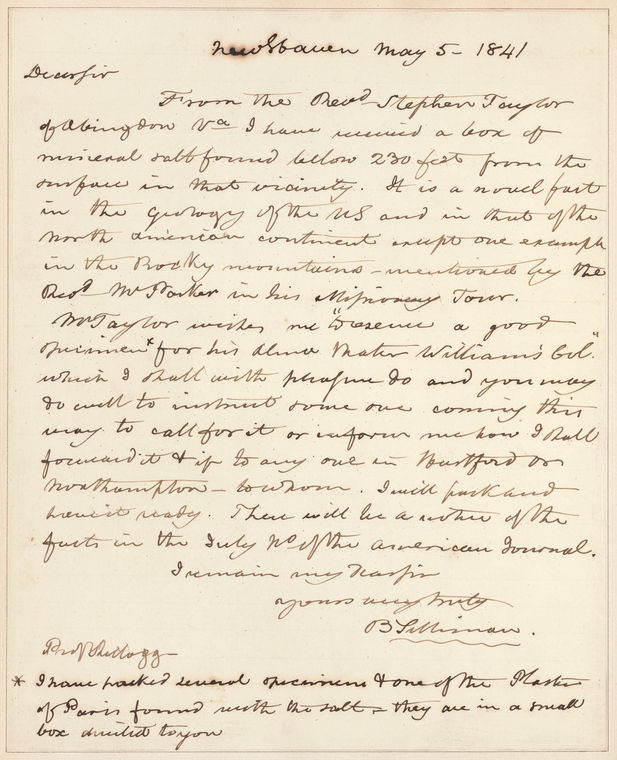 New Haven May 5 - 1841
Dear sir
From the Revd Stephen Taylor
of Abingdon Va I have received a box of
mineral salt found below 230 feet from the
surface in that vicinity. It is a novel fact
in the Geology of the US and in that of the
North american continent except one example
in the Rocky mountains - mentioned by the
Revd Mr Parker in his Missionary Tour.
Mr Taylor wishes me "to reserve a good
specimen* for his Alma Mater Williams Col."
which I shall with pleasure do and you may
do well to instruct some one coming this
way to call for it or inform me how I shall
forward it & if to any one in Hartford or
Northampton - to whom. I will pack and
have it ready. There will be a notice of the
facts in the July No of the American Journal.
I remain my Dear sir
yours very truly
B Silliman.
Prof Kellogg -
* I have packed several specimens & one of the Plaster
of Paris found with the salt - they are in a small
box directed to you